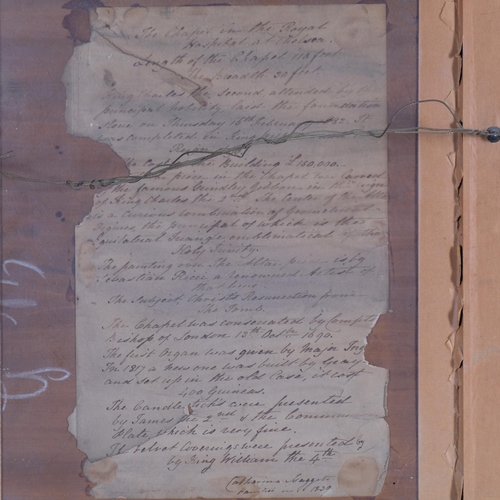 The Chapel in the Royal
Hospital at Chelsea.
Length of the Chapel 110 feet
The breadth 30 feet.
King Charles the second attended by
principal nobility laid the foundation
stone on Thursday 16th February It
was completed in King
Building £150,000.
piece in the Chapel was carved
the famous Grindley Gibbons in the reign
of King Charles the 2nd. The Center of the
is a Curious combination of
figures the principal of which is the
Equilateral Triangle emblematical of the
Holy Trinity.
The painting over the Altar is by
Sebastian Ricci a renowned Artist of
that time.
The Subject, Christ's Resurrection from
The Tomb.
The Chapel was consecrated by Compton
Bishop of London 12th Octbr 1690.
The first Organ was given by Major
In 1817 a new one was built by
and set up in the old Case, it cost
400 Guineas.
The Candle Sticks were presented
by James the 2nd & the Communion
Plate, which is very fine.
The velvet Coverings were presented by
by King William the 4th
Catharina